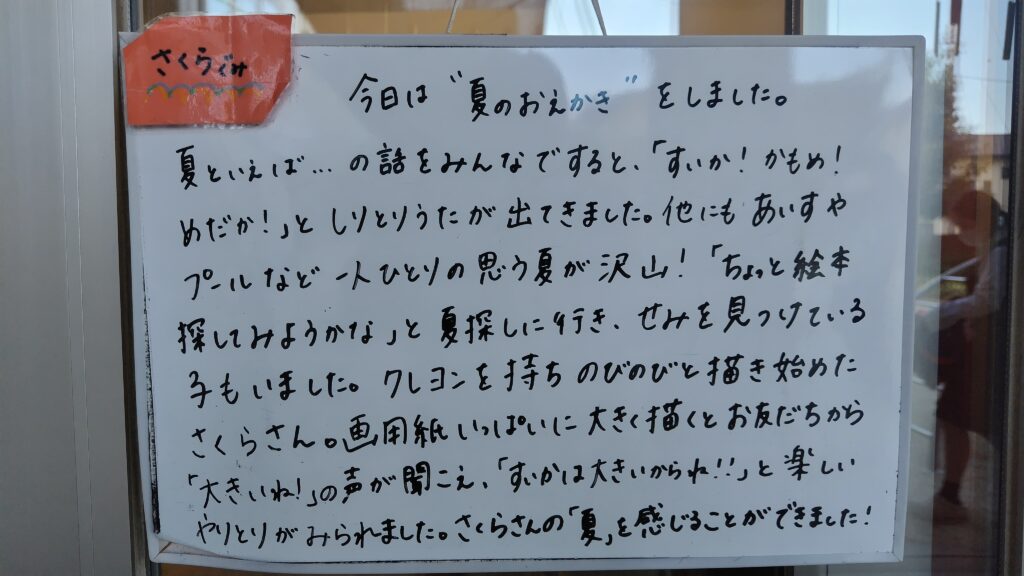 さくらぐみ
今日は"夏のおえかき"をしました。
夏といえば…の話をみんなですると、「すいか！かもめ！
めだか！」としりとりうたが出てきました。他にもあいすや
プールなど一人ひとりの思う夏が沢山！「ちょっと絵本
探してみようかな」と夏探しに行き、せみを見つけている
子もいました。クレヨンを持ちのびのびと描き始めた
さくらさん。画用紙いっぱいに大きく描くとお友だちから
「大きいね！」の声が聞こえ、「すいかは大きいからね！！」と楽しい
やりとりがみられました。さくらさんの「夏」を感じることができました！